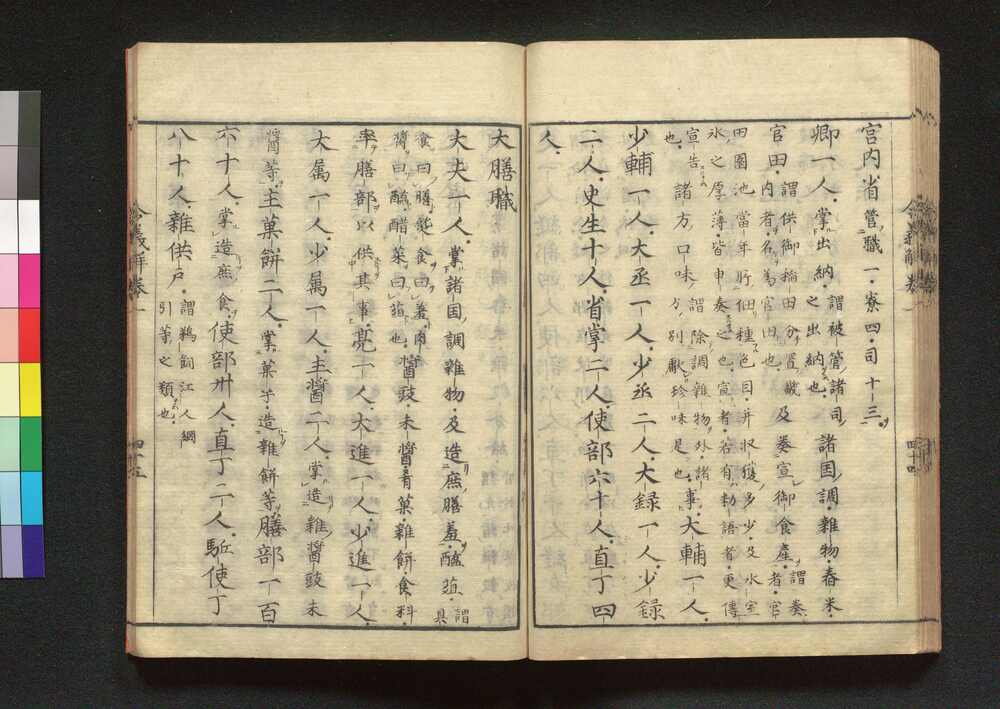 宮内省管職一・寮四・司十三・
卿一人・掌出納・謂被管諸司之出納也・諸国調・雑物・舂米・
官田・謂供御稲田分置畿内者・名為官田也・及奏宣御食産・謂奏者・官
田園池当年所佃種色目并収獲多少・及氷室
氷之厚薄皆申奏之也・宣者・若有勅語者・更伝
宣告也・諸方口味謂除調雑物外・諸方別献珍味是也・事・大輔一人・
少輔一人・大丞一人・少丞二人・大録一人・少録
二人・史生十人・省掌二人・使部六十人・直丁四
人・
大膳職
大夫一人・掌諸国調雑物・及造庶膳羞・醢葅・謂具
食曰膳・熟食曰羞・肉
醤曰醢・酢菜曰葅也・醤豉未醤肴菓雑餅食料・
率膳部以供其事・亮一人・大進一人・少進一人・
大属一人・少属一人・主醤二人・掌造雑醤豉未
醤等・主菓餅二人・掌菓子・造雑餅等・膳部一百
六十人・掌造庶食・使部卅人・直丁二人・駈使丁
八十人・雑供戸・謂鵜飼江人網
引等之類也・
令義解巻一
四十四
令義解巻一